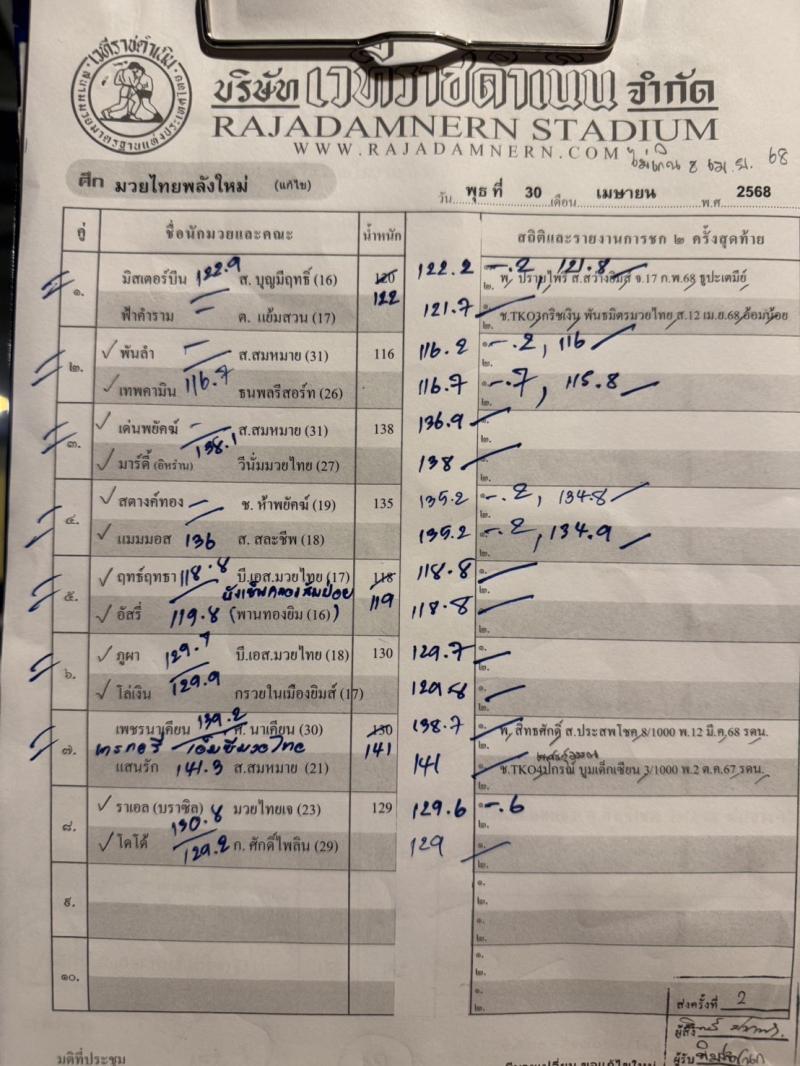 เวทีราชดำเนิน
บริษัท เวทีราชดำเนิน จำกัด
RAJADAMNERN STADIUM
WWW.RAJADAMNERN.COM
ไม่เกิน 8 เม.ย. 68
ศึก มวยไทยพลังใหม่ (แก้ไข)
วัน พุธ ที่ 30 เดือน เมษายน พ.ศ 2568
คู่ ชื่อนักมวยและคณะ น้ำหนัก สถิติและรายงานการชก ๒ ครั้งสุดท้าย
๑. มิสเตอร์บีน 122.9 ส. บุญมีฤทธิ์ (16) 120 122.2 -.2 121.8 ๒. พ. ปราบไพรี ส.สว่างยิมส์ จ.17 ก.พ.68 ธูปะเตมีย์
122
ฟ้าคำราม ต. แย้มสวน (17) 121.7 ๑. ช.TKO3กริชเงิน พันธมิตรมวยไทย ส.12 เม.ย.68 อ้อมน้อย
๒.
๒. พันลำ ส.สมหมาย (31) 116 116.2 ๑. -.2, 116
๒.
เทพคามิน 116.7 ธนพลรีสอร์ท (26) 116.7 ๑. -.7, 115.8
๒.
๓. เด่นพยัคฆ์ ส.สมหมาย (31) 138 136.9 ๑.
๒.
มาร์ตี้ (อิหร่าน) 138.1 วีนั่มมวยไทย (27) 138 ๑.
๒.
๔. สตางค์ทอง ช. ห้าพยัคฆ์ (19) 135 135.2 ๑. -.2, 134.8
๒.
แมมมอส 136 ส. สละชีพ (18) 135.2 ๑. -.2, 134.9
๒.
๕. ฤทธิ์ฤทธา 118.8 บี.เอส.มวยไทย (17) 118 118.8 ๑.
119 ๒.
อัสรี่ 119.8 (พานทองยิม (16)) 118.8 ๑.
๒.
๖. ภูผา 129.7 บี.เอส.มวยไทย (18) 130 129.7 ๑.
๒.
โล่เงิน 129.9 กรวยในเมืองยิมส์ (17) 129.8 ๑.
๒.
๗. เพชรนาเคียน 139.2 ศ. นาเคียน (30) 130 138.7 ๑. พ. สิทธศักดิ์ ส.ประสพโชค 8/1000 พ.12 มี.ค.68 รดน.
141 ๒.
แสนรัก 141.3 ส.สมหมาย (21) 141 ๑. ช.TKO4ปกรณ์ บูมเด็กเซียน 3/1000 พ.2 ต.ค.67 รดน.
๒.
๘. ราเอล (บราซิล) 130.8 มวยไทยเจ (23) 129 129.6 ๑. -.6
๒.
โดโด้ 129.2 ก. ศักดิ์ไพลิน (29) 129 ๑.
๒.
๙. ๑.
๒.
๑.
๒.
๑๐. ๑.
๒.
๑.
๒.
ส่งครั้งที่ 2
ผู้ส่ง
ผู้รับ
มติที่ประชุม